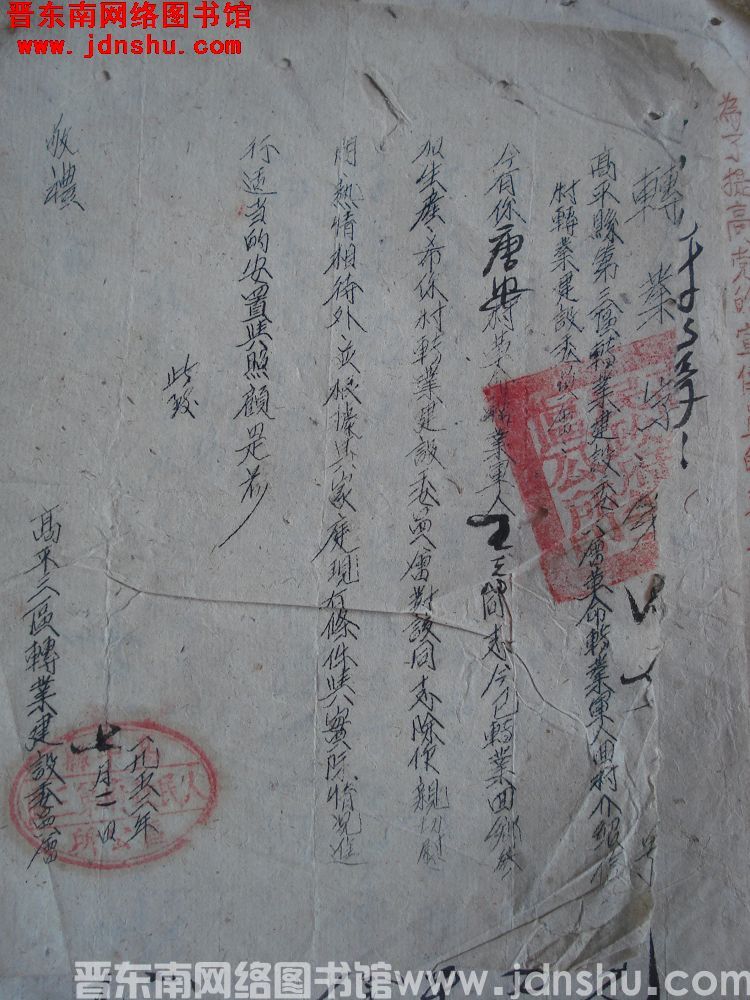 晋东南网络图书馆
www.jdnshu.com
為了提高
轉業字
高平縣第三區轉業建設委員會革命轉業軍人回村介紹信
村轉業建設委員會
今有你唐安村革命轉業軍人王 同志今已轉業回鄉參
加生產希你村轉業建設委員會對該同志除作親切慰
問熱情相待外並根據其家庭現有條件與實际情況進
行适当的安置與照顧是荷
此致
敬禮
高平三區轉業建設委員會
一九五二年
七月二日
區公所
晋东南网络图书馆 www.jdnshu.com